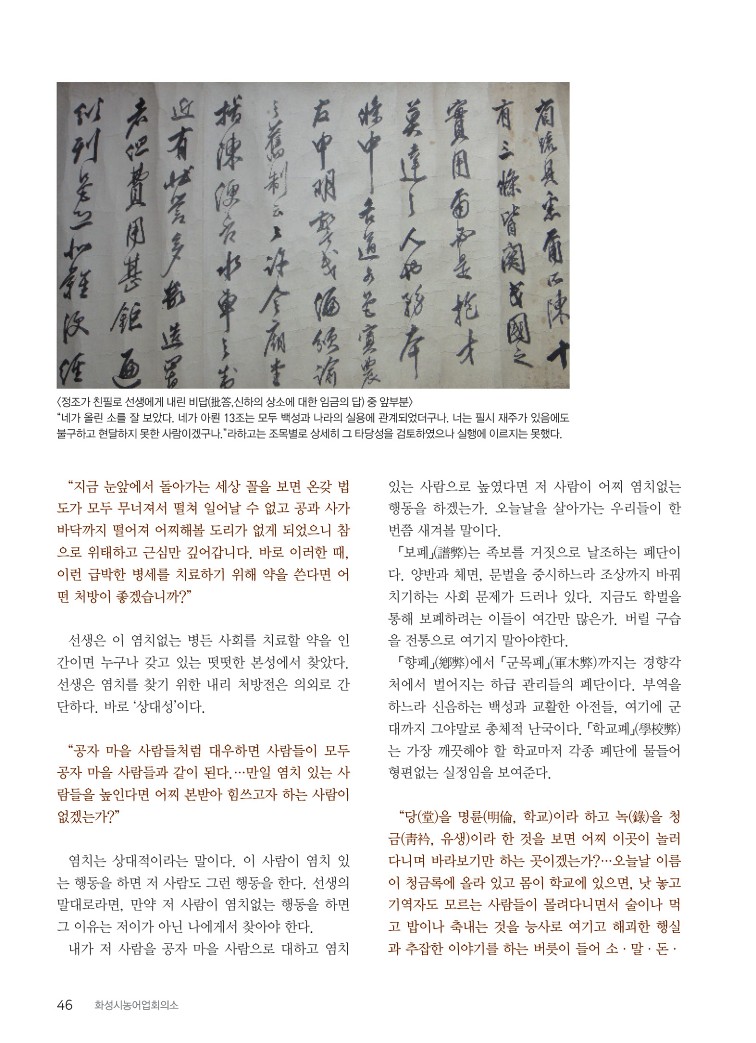 省疏具悉爾所陳十
有三條皆關民國之
實用爾必是抱才
莫達之人也務本
條中
右申明
之舊制云云許令廟堂
水車之制
近有狀啓多數造置
者但費用甚鉅
〈정조가 친필로 선생에게 내린 비답(批答,신하의 상소에 대한 임금의 답) 중 앞부분〉
“네가 올린 소를 잘 보았다. 네가 아뢴 13조는 모두 백성과 나라의 실용에 관계되었더구나. 너는 필시 재주가 있음에도
불구하고 현달하지 못한 사람이겠구나.”라하고는 조목별로 상세히 그 타당성을 검토하였으나 실행에 이르지는 못했다.
“지금 눈앞에서 돌아가는 세상 꼴을 보면 온갖 법
도가 모두 무너져서 떨쳐 일어날 수 없고 공과 사가
바닥까지 떨어져 어찌해볼 도리가 없게 되었으니 참
으로 위태하고 근심만 깊어갑니다. 바로 이러한 때,
이런 급박한 병세를 치료하기 위해 약을 쓴다면 어
떤 처방이 좋겠습니까?”
선생은 이 염치없는 병든 사회를 치료할 약을 인
간이면 누구나 갖고 있는 떳떳한 본성에서 찾았다.
선생은 염치를 찾기 위한 내리 처방전은 의외로 간
단하다. 바로 ‘상대성’이다.
“공자 마을 사람들처럼 대우하면 사람들이 모두
공자 마을 사람들과 같이 된다.…만일 염치 있는 사
람들을 높인다면 어찌 본받아 힘쓰고자 하는 사람이
없겠는가?”
염치는 상대적이라는 말이다. 이 사람이 염치 있
는 행동을 하면 저 사람도 그런 행동을 한다. 선생의
말대로라면, 만약 저 사람이 염치없는 행동을 하면
그 이유는 저이가 아닌 나에게서 찾아야 한다.
내가 저 사람을 공자 마을 사람으로 대하고 염치
있는 사람으로 높였다면 저 사람이 어찌 염치없는
행동을 하겠는가. 오늘날을 살아가는 우리들이 한
번쯤 새겨볼 말이다.
「보폐」(譜弊)는 족보를 거짓으로 날조하는 폐단이
다. 양반과 체면, 문벌을 중시하느라 조상까지 바꿔
치기하는 사회 문제가 드러나 있다. 지금도 학벌을
통해 보폐하려는 이들이 여간만 많은가. 버릴 구습
을 전통으로 여기지 말아야한다.
「향폐」(鄕弊)에서 「군목폐」(軍木弊)까지는 경향각
처에서 벌어지는 하급 관리들의 폐단이다. 부역을
하느라 신음하는 백성과 교활한 아전들, 여기에 군
대까지 그야말로 총체적 난국이다. 「학교폐」(學校弊)
는 가장 깨끗해야 할 학교마저 각종 폐단에 물들어
형편없는 실정임을 보여준다.
“당(堂)을 명륜(明倫, 학교)이라 하고 녹(錄)을 청
금(靑衿, 유생)이라 한 것을 보면 어찌 이곳이 놀러
다니며 바라보기만 하는 곳이겠는가?…오늘날 이름
이 청금록에 올라 있고 몸이 학교에 있으면, 낫 놓고
기역자도 모르는 사람들이 몰려다니면서 술이나 먹
고 밥이나 축내는 것을 능사로 여기고 해괴한 행실
과 추잡한 이야기를 하는 버릇이 들어 소 · 말 · 돈 ·
46 화성시농어업회의소